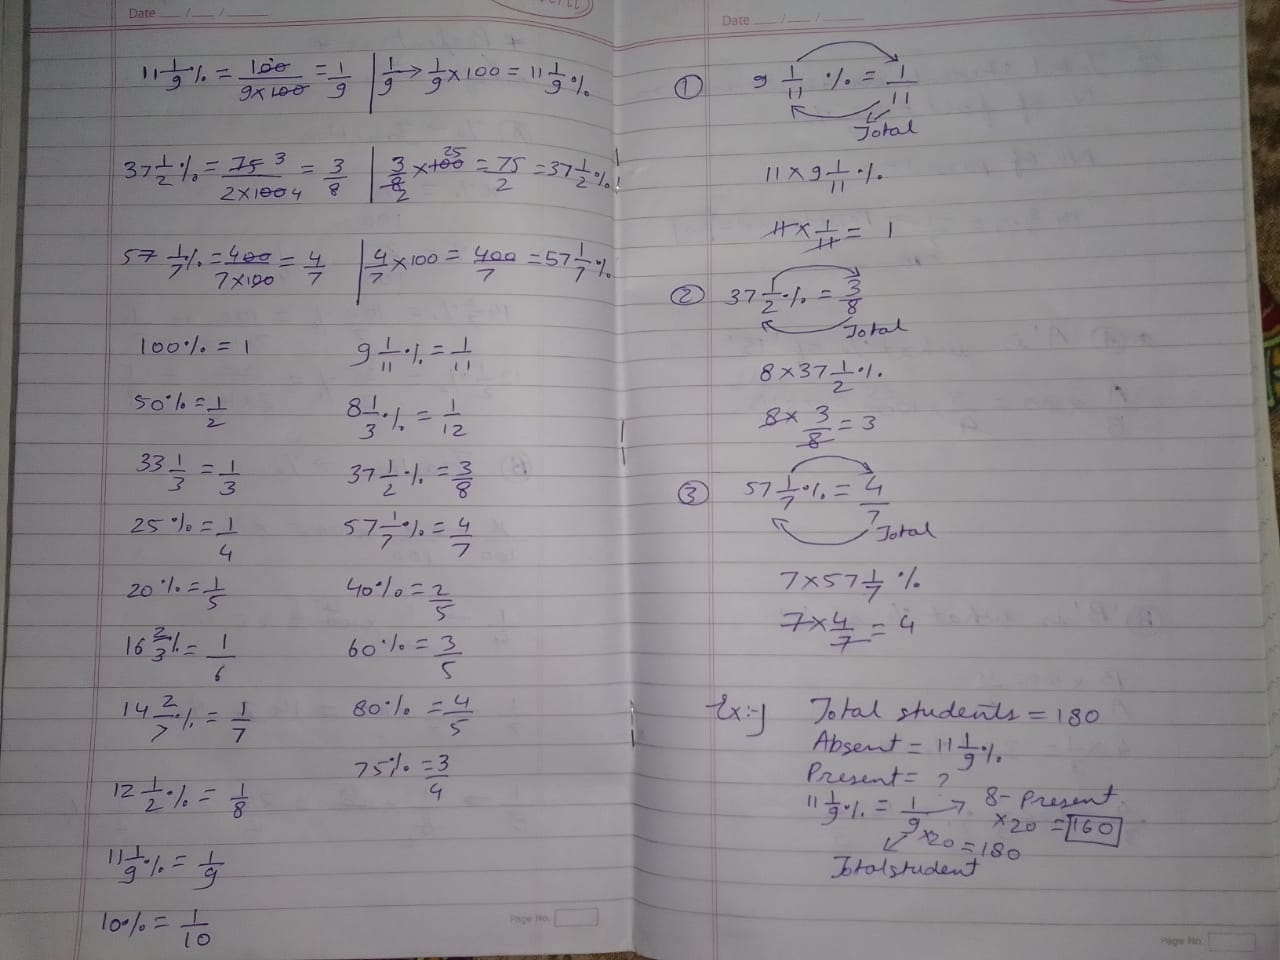 Date __/__/__
11 1/9 % = 100/(9×100) = 1/9 | 1/9 → 1/9 × 100 = 11 1/9 %
37 1/2 % = 75 3/(2×100 4) = 3/8 | 3/8 2 × 100 25 = 75/2 = 37 1/2 %
57 1/7 % = 400/(7×100) = 4/7 | 4/7 × 100 = 400/7 = 57 1/7 %
100% = 1
50% = 1/2
33 1/3 = 1/3
25% = 1/4
20% = 1/5
16 2/3 % = 1/6
14 2/7 % = 1/7
12 1/2 % = 1/8
11 1/9 % = 1/9
10% = 1/10
9 1/11 % = 1/11
8 1/3 % = 1/12
37 1/2 % = 3/8
57 1/7 % = 4/7
40% = 2/5
60% = 3/5
80% = 4/5
75% = 3/4
Page No.
Date __/__/__
① 9 1/11 % = 1/11
Total
11 × 9 1/11 %
11 × 1/11 = 1
② 37 1/2 % = 3/8
Total
8 × 37 1/2 %
8 × 3/8 = 3
③ 57 1/7 % = 4/7
Total
7 × 57 1/7 %
7 × 4/7 = 4
Ex:-) Total students = 180
Absent = 11 1/9 %
Present = ?
11 1/9 % = 1/9 → 8 - Present
×20 = 160
×20 = 180
Total student
Page No.